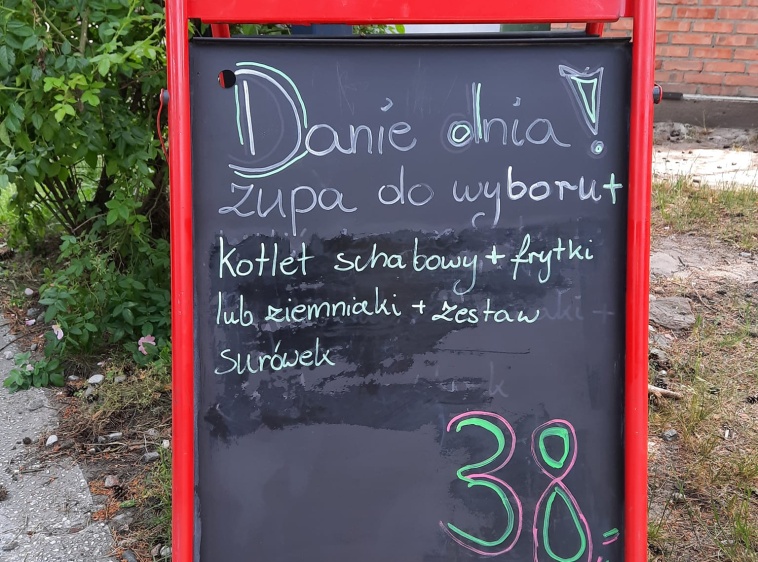 Danie dnia!
zupa do wyboru +
kotlet schabowy + frytki
lub ziemniaki + zestaw
surówek
38,-